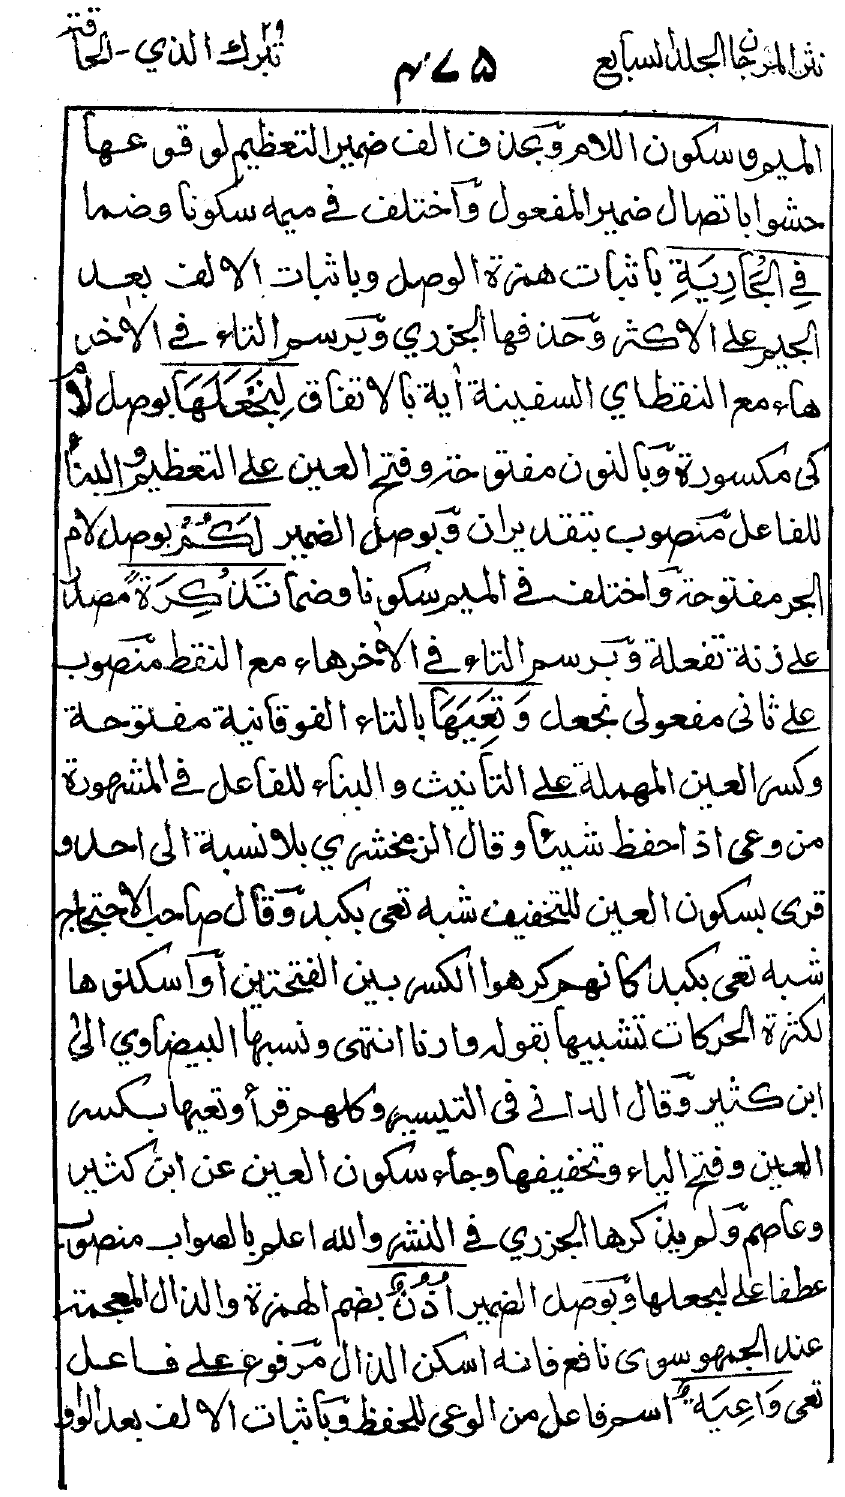 نثر المرجان الجلد السابع
٤٧٥
تبرك الذي ٢٩ - الحاقة
الميم و سكون اللام وّبحذف الف ضمير التعظيم لوقوعها
حشوا باتصال ضمير المفعول وّاختلف في ميمه سكونا وضما
فِي الْجَارِيَةِ باثبات همزة الوصل وباثبات الالف بعد
الجيم على الاكثر وّحذفها الجزري وّبرسم التاء في الاخر
هاء مع النقط اي السفينة أية بالاتفاق لِنَجْعَلَهَا بوصل لام
كى مكسورة وّبالنون مفتوحة وفتح العين على التعظيم والبناء
للفاعل مّنصوب بتقدير ان وّبوصل الضمير لَكُمْ بوصل لام
الجر مفتوحة وّاختلف في الميم سكونا وضما تَذْكِرَةً مصدر
على زنة تفعلة وّبرسم التاء في الاخر هاء مع النقط مّنصوب
على ثانى مفعولى نجعل وَتَعِيَهَا بالتاء الفوقانية مفتوحة
وكسر العين المهملة على التأنيث والبناء للفاعل في المشهورة
من وعى اذا حفظ شيئا وقال الزمخشري بلا نسبة الى احد و
قرى بسكون العين للتخفيف شبه تعى بكبد وّقال صاحب الاحتجاج
شبه تعى بكبد كانهم كرهوا الكسر بين الفتحتين أوّ اسكنوها
لكثرة الحركات تشبيها بقوله وارنا انتهى ونسبها البيضاوي الى
ابن كثير وّقال الدانى في التيسير وكلهم قرأ وتعيها بكسر
العين وفتح الياء وتخفيفها وجاء سكون العين عن ابن كثير
وعاصم وّلم يذكرها الجزري في النشر والله اعلم بالصواب منصوب
عطفا على لنجعلها وّبوصل الضمير أُذُنٌ بضم الهمزة والذال المعجمة
عند الجمهور سوى نافع فانه اسكن الذال مّرفوع على فاعل
تعى وَاعِيَةٌ اسم فاعل من الوعى للحفظ وّباثبات الالف بعد الواو